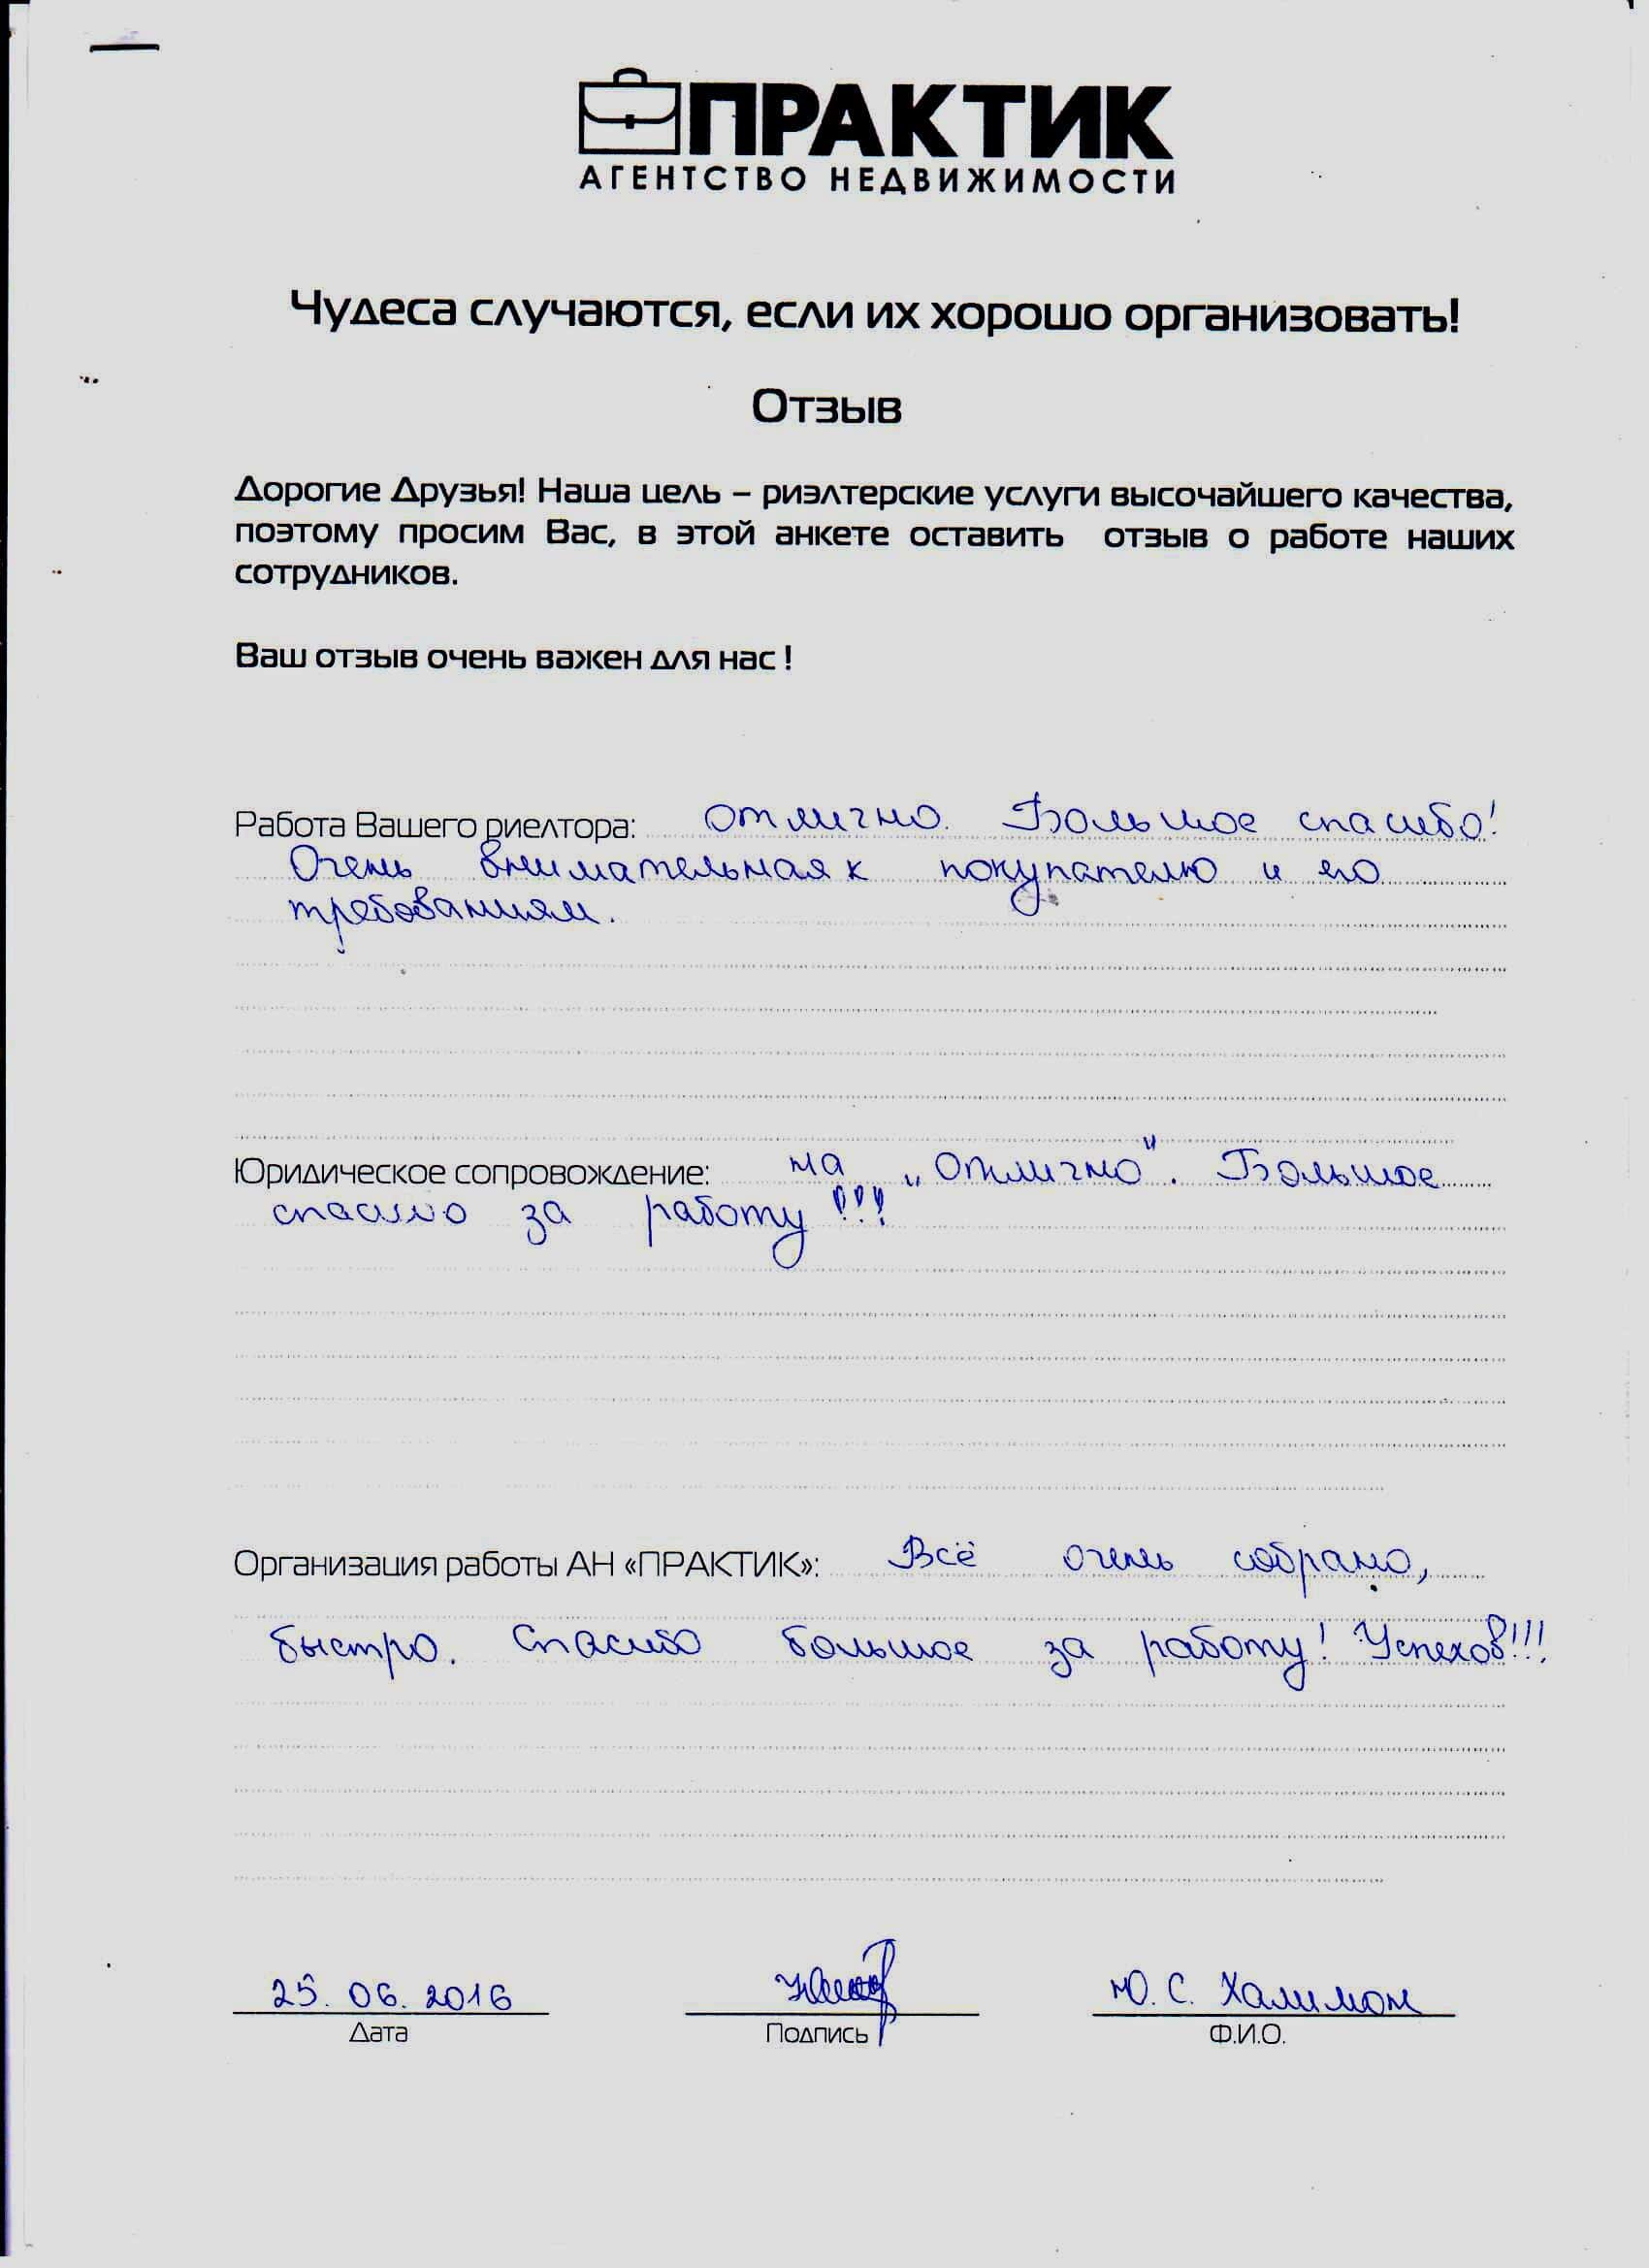 ПРАКТИК
АГЕНТСТВО НЕДВИЖИМОСТИ
Чудеса случаются, если их хорошо организовать!
Отзыв
Дорогие Друзья! Наша цель – риэлтерские услуги высочайшего качества,
поэтому просим Вас, в этой анкете оставить отзыв о работе наших
сотрудников.
Ваш отзыв очень важен для нас !
Работа Вашего риелтора: отлично. Большое спасибо!
Очень внимательная к покупателю и его
требованиям.
Юридическое сопровождение: на „Отлично". Большое
спасибо за работу!!!
Организация работы АН «ПРАКТИК»: Всё очень собрано,
быстро. Спасибо большое за работу! Успехов!!!
25. 06. 2016 Ю. С. Халимон
Дата Подпись Ф.И.О.